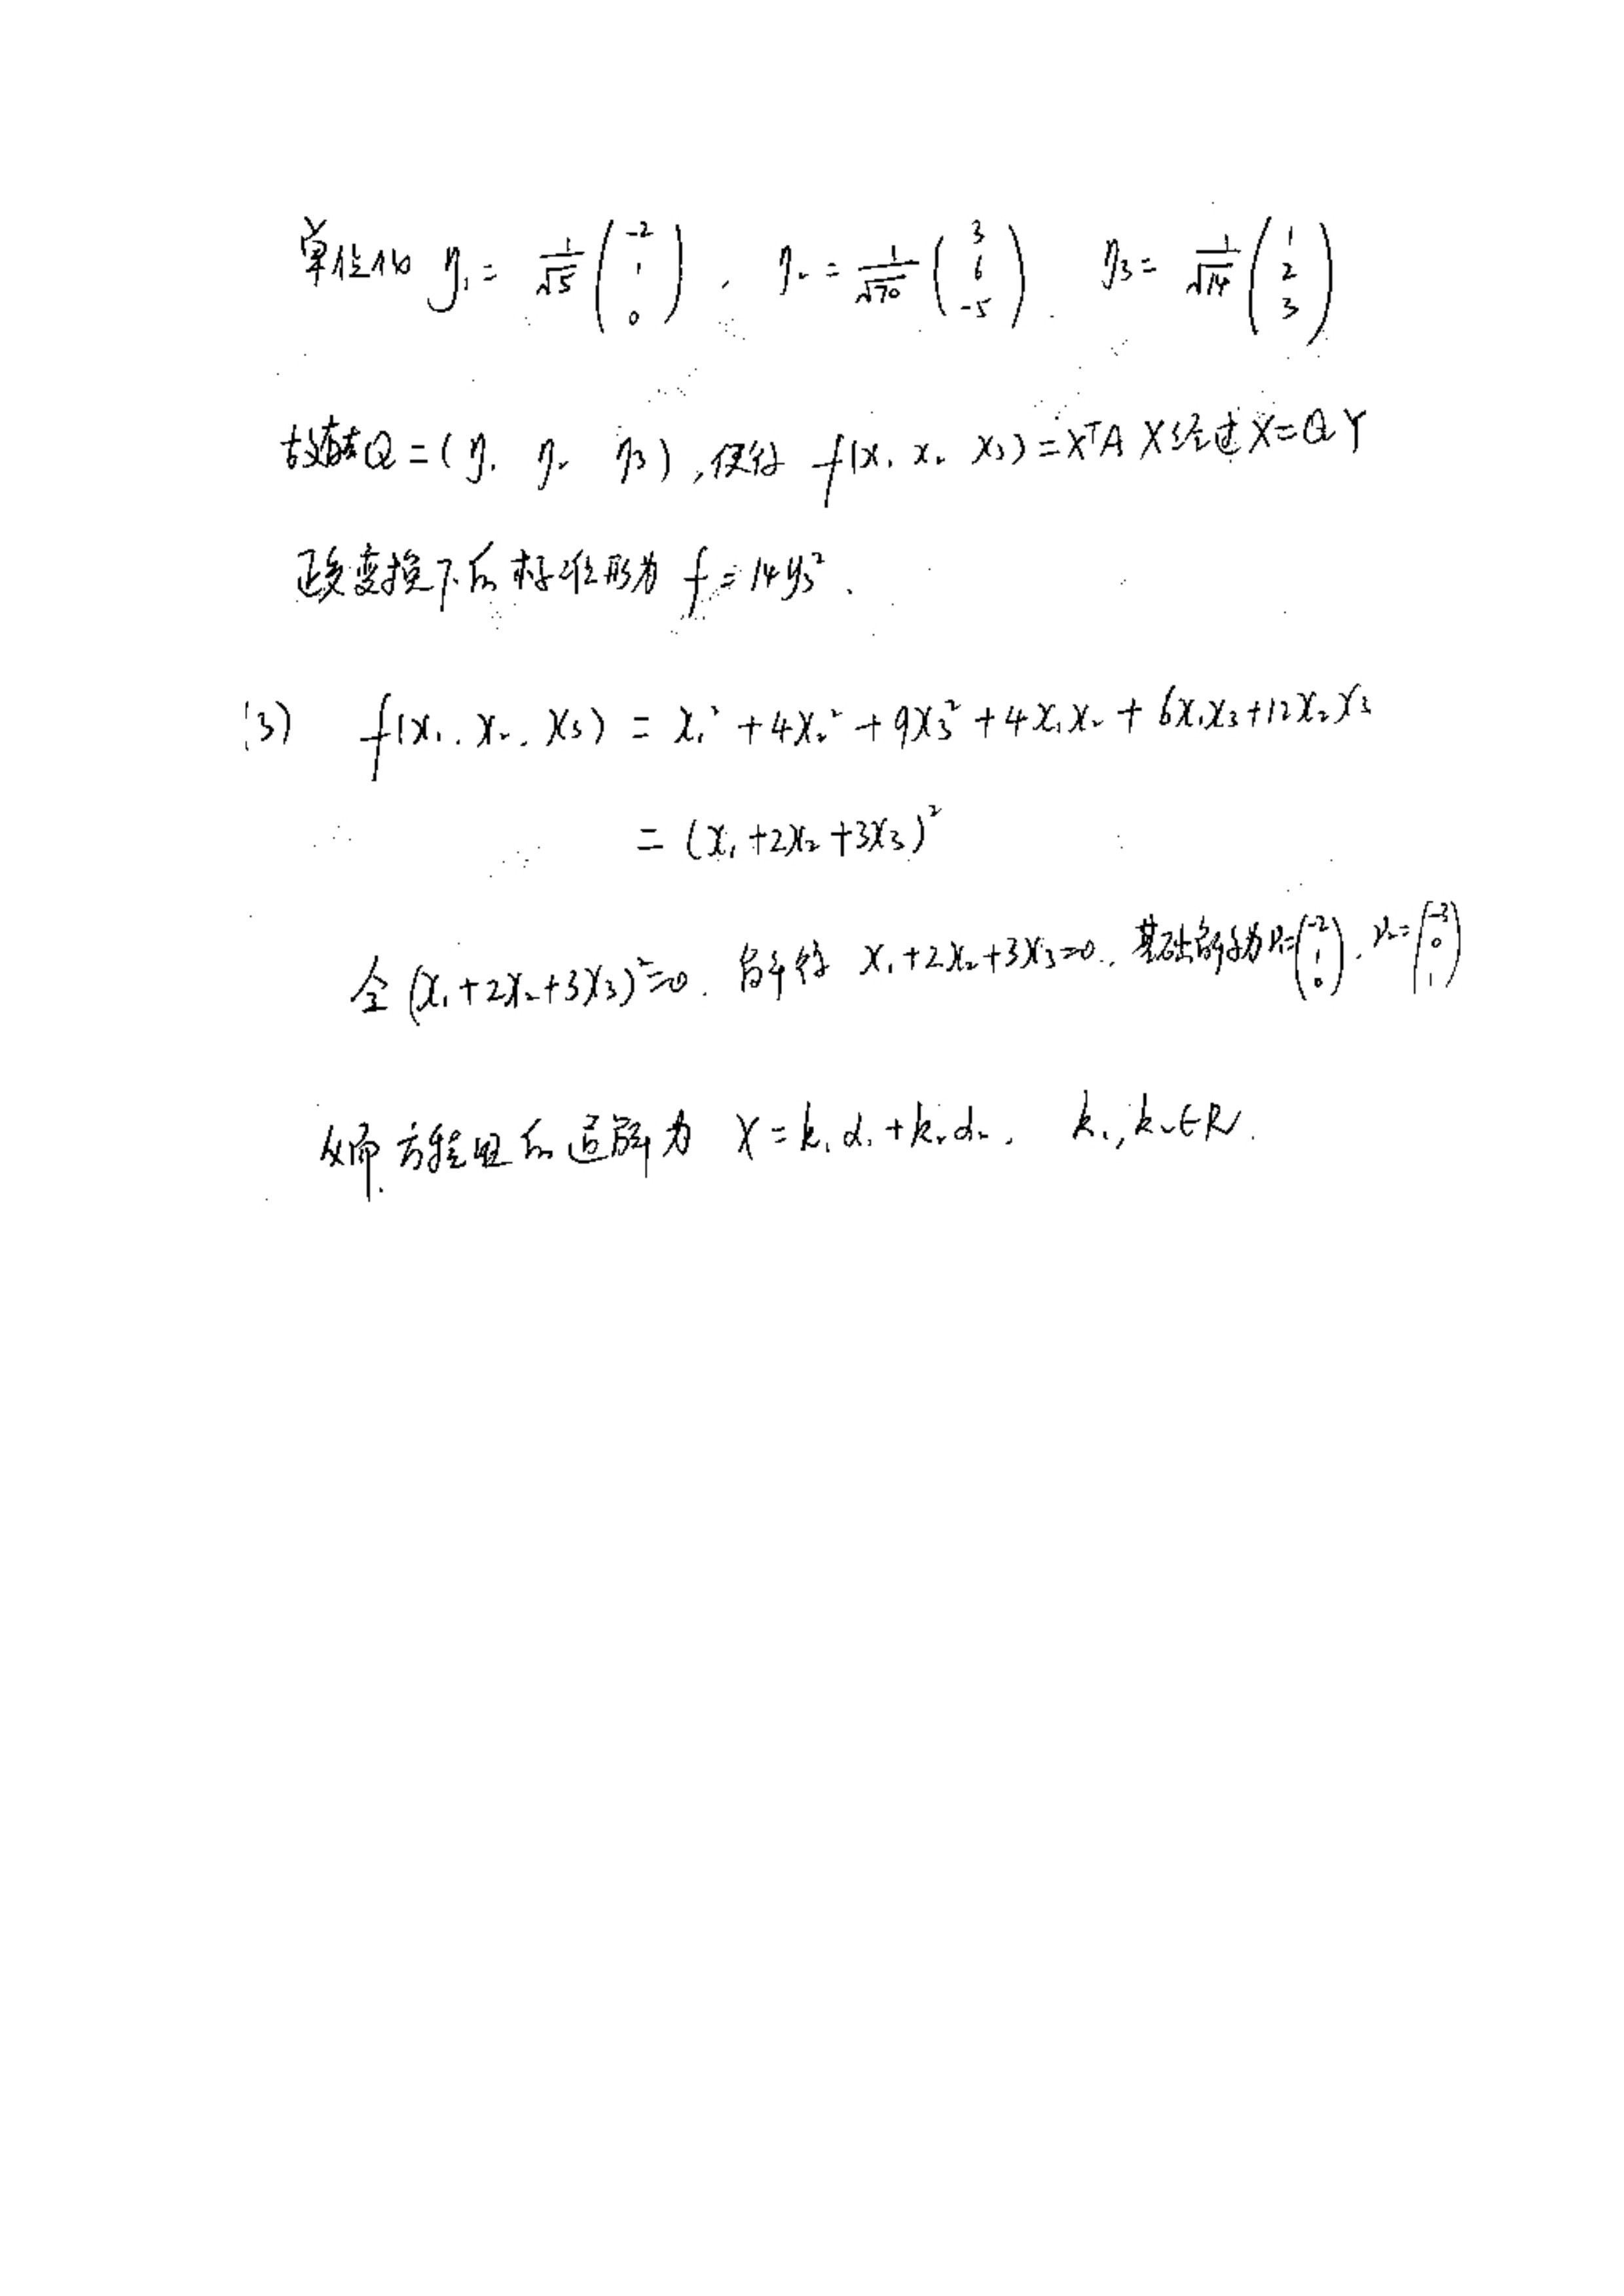 单位化 η₁ = 1/√5 (-2 1 0), η₂ = 1/√70 (3 6 -5). η₃ = 1/√14 (1 2 3)
故有Q = (η₁ η₂ η₃), 使得 f(x₁ x₂ x₃) = XᵀAX 经过 X = QY
正交变换下的标准形为 f = 14y₃².
(3) f(x₁, x₂, x₃) = x₁² + 4x₂² + 9x₃² + 4x₁x₂ + 6x₁x₃ + 12x₂x₃
= (x₁ + 2x₂ + 3x₃)²
令 (x₁ + 2x₂ + 3x₃)² = 0. 解得 x₁ + 2x₂ + 3x₃ = 0. 基础解系为 ν₁ = (-2 1 0), ν₂ = (-3 0 1)
从而方程组的通解为 X = k₁α₁ + k₂α₂, k₁, k₂ ∈ R.